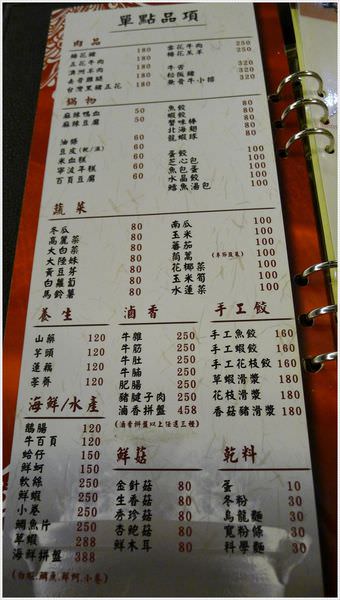 單點品項
肉品
梅花豬 180
五花牛肉 180
澳洲羊肉 180
去骨雞腿 180
台灣黑豬五花 180
雪花牛肉 250
梅花羊羔 250
牛舌 320
松阪豬 320
無骨牛小排 320
鍋物
麻辣鴨血 50
麻辣豆腐 50
油條 60
豆皮(乾/濕) 60
米血糕 60
寧波年糕 60
百頁豆腐 60
魚餃 80
蝦餃 80
蟹味棒 80
北海翅 80
龍蝦球 80
蛋餃 100
芝心包 100
魚包蛋 100
水晶餃 100
鱈魚湯包 100
蔬菜
冬瓜 80
高麗菜 80
大白菜 80
大陸妹 80
黃豆芽 80
白蘿蔔 80
馬鈴薯 80
南瓜 100
玉米 100
番茄 100
茼蒿 (季節蔬菜) 100
花椰菜 100
玉米筍 100
水蓮菜 100
養生
山藥 120
芋頭 120
蓮藕 120
荸薺 120
滷香
牛雜 250
牛筋 250
牛肚 250
牛腩 250
肥腸 250
豬腱子肉 250
滷香拼盤 458
(滷香拼盤以上任選三種)
手工餃
手工魚餃 160
手工蝦餃 160
手工花枝餃 160
草蝦滑漿 180
花枝滑漿 180
香菇豬滑漿 180
海鮮/水產
鵝腸 120
牛百頁 120
蛤仔 150
鮮蚵 150
軟絲 250
鮮蝦 250
小卷 250
鯛魚片 250
草蝦 288
海鮮拼盤 388
鮮菇
金針菇 80
生香菇 80
秀珍菇 80
杏鮑菇 80
鮮木耳 80
乾料
蛋 10
冬粉 30
烏龍麵 30
寬粉條 30
科學麵 30